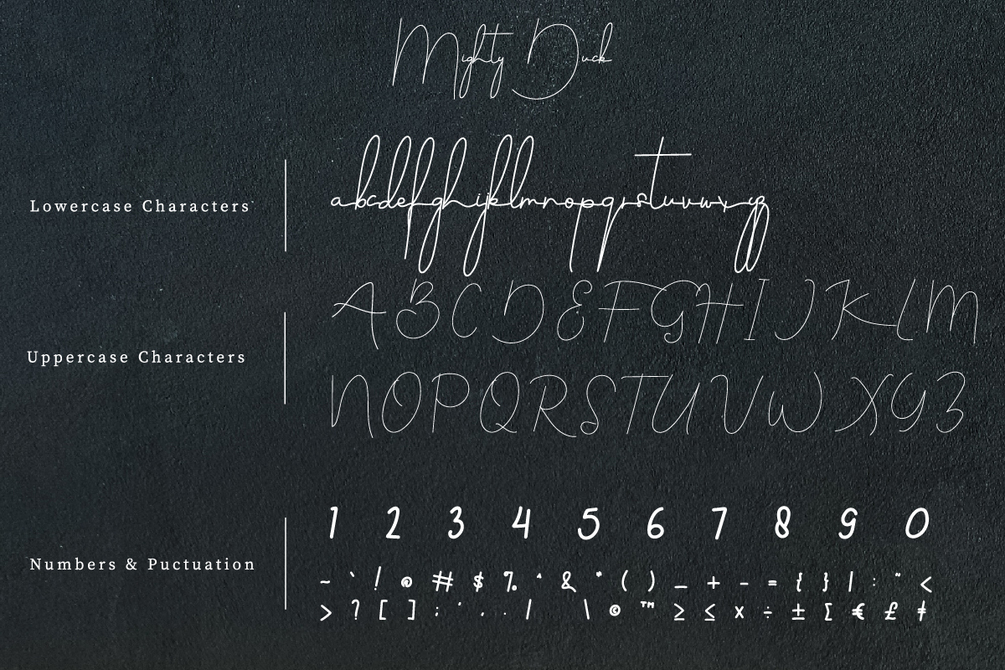 Mighty Duck
Lowercase Characters
abcdefghijklmnopqrstuvwxyz
Uppercase Characters
ABCDEFGHIJKLM
NOPQRSTUVWXYZ
Numbers & Puctuation
1 2 3 4 5 6 7 8 9 0
~ ` ! @ # $ % ^ & * ( ) _ + - = { } | : " <
> ? [ ] ; ' , . / \ © ™ ≥ ≤ x ÷ ± € £ ǂ